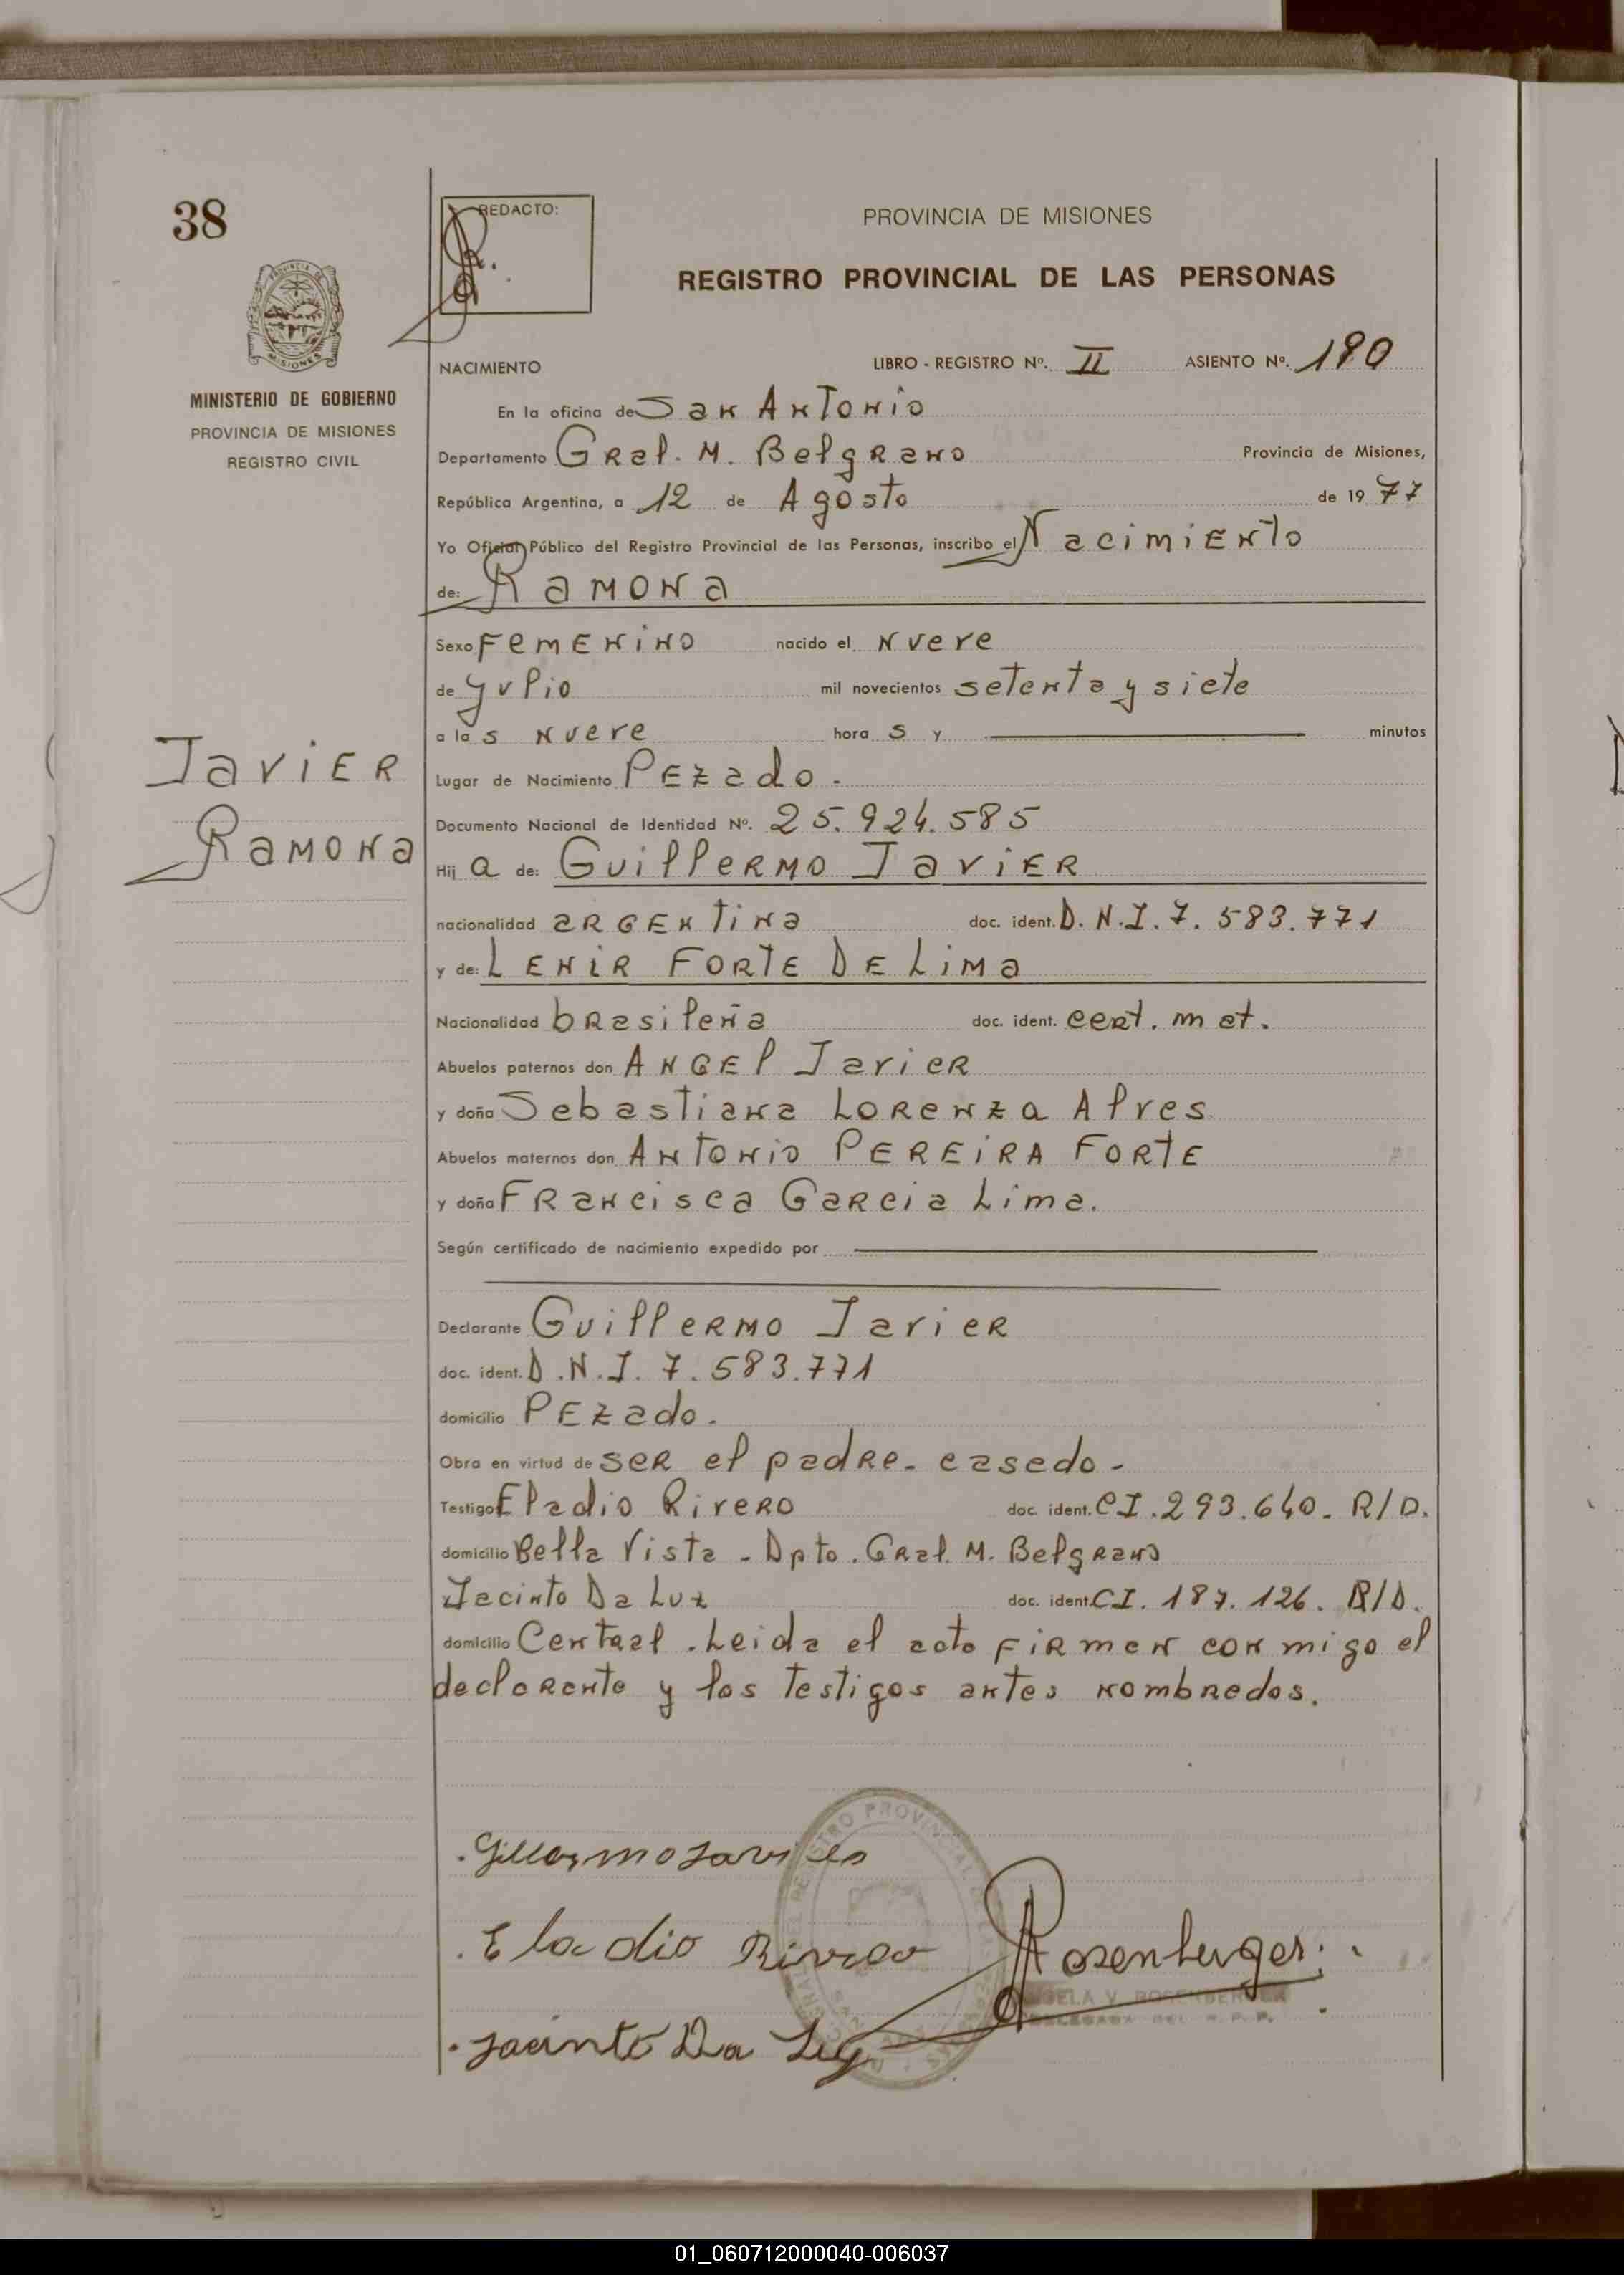 38
REDACTO:
PROVINCIA DE MISIONES
REGISTRO PROVINCIAL DE LAS PERSONAS
MISIONES
MINISTERIO DE GOBIERNO
PROVINCIA DE MISIONES
REGISTRO CIVIL
NACIMIENTO LIBRO - REGISTRO Nº. II ASIENTO Nº. 190
En la oficina de San Antonio
Departamento Gral. M. Belgrano Provincia de Misiones,
República Argentina, a 12 de Agosto de 1977
Yo Oficial Público del Registro Provincial de las Personas, inscribo el Nacimiento
de: Ramona
Sexo Femenino nacido el nueve
de Julio mil novecientos setenta y siete
a las nueve horas y minutos
Javier
Ramona
Lugar de Nacimiento Pezado.
Documento Nacional de Identidad Nº. 25.924.585
Hija de: Guillermo Javier
nacionalidad argentina doc. ident. D.N.I. 7.583.771
y de: Lenir Forte De Lima
Nacionalidad brasileña doc. ident. cert. mat.
Abuelos paternos don Angel Javier
y doña Sebastiana Lorenza Alves
Abuelos maternos don Antonio Pereira Forte
y doña Francisca Garcia Lima.
Según certificado de nacimiento expedido por
Declarante Guillermo Javier
doc. ident. D.N.I. 7.583.771
domicilio Pezado.
Obra en virtud de ser el padre. casado-
Testigo Eladio Rivero doc. ident. CI.293.640. R/D.
domicilio Bella Vista - Dpto. Gral. M. Belgrano
Jacinto Da Luz doc. ident. CI. 187.126. R/D.
domicilio Central. Leida el acta firman conmigo el
declarante y los testigos antes nombrados.
Eladio Rivero
Rosenberger
ANGELA V. ROSENBERGER
DELEGADA DEL R. P. P.
Jacinto Da Luz
01_060712000040-006037